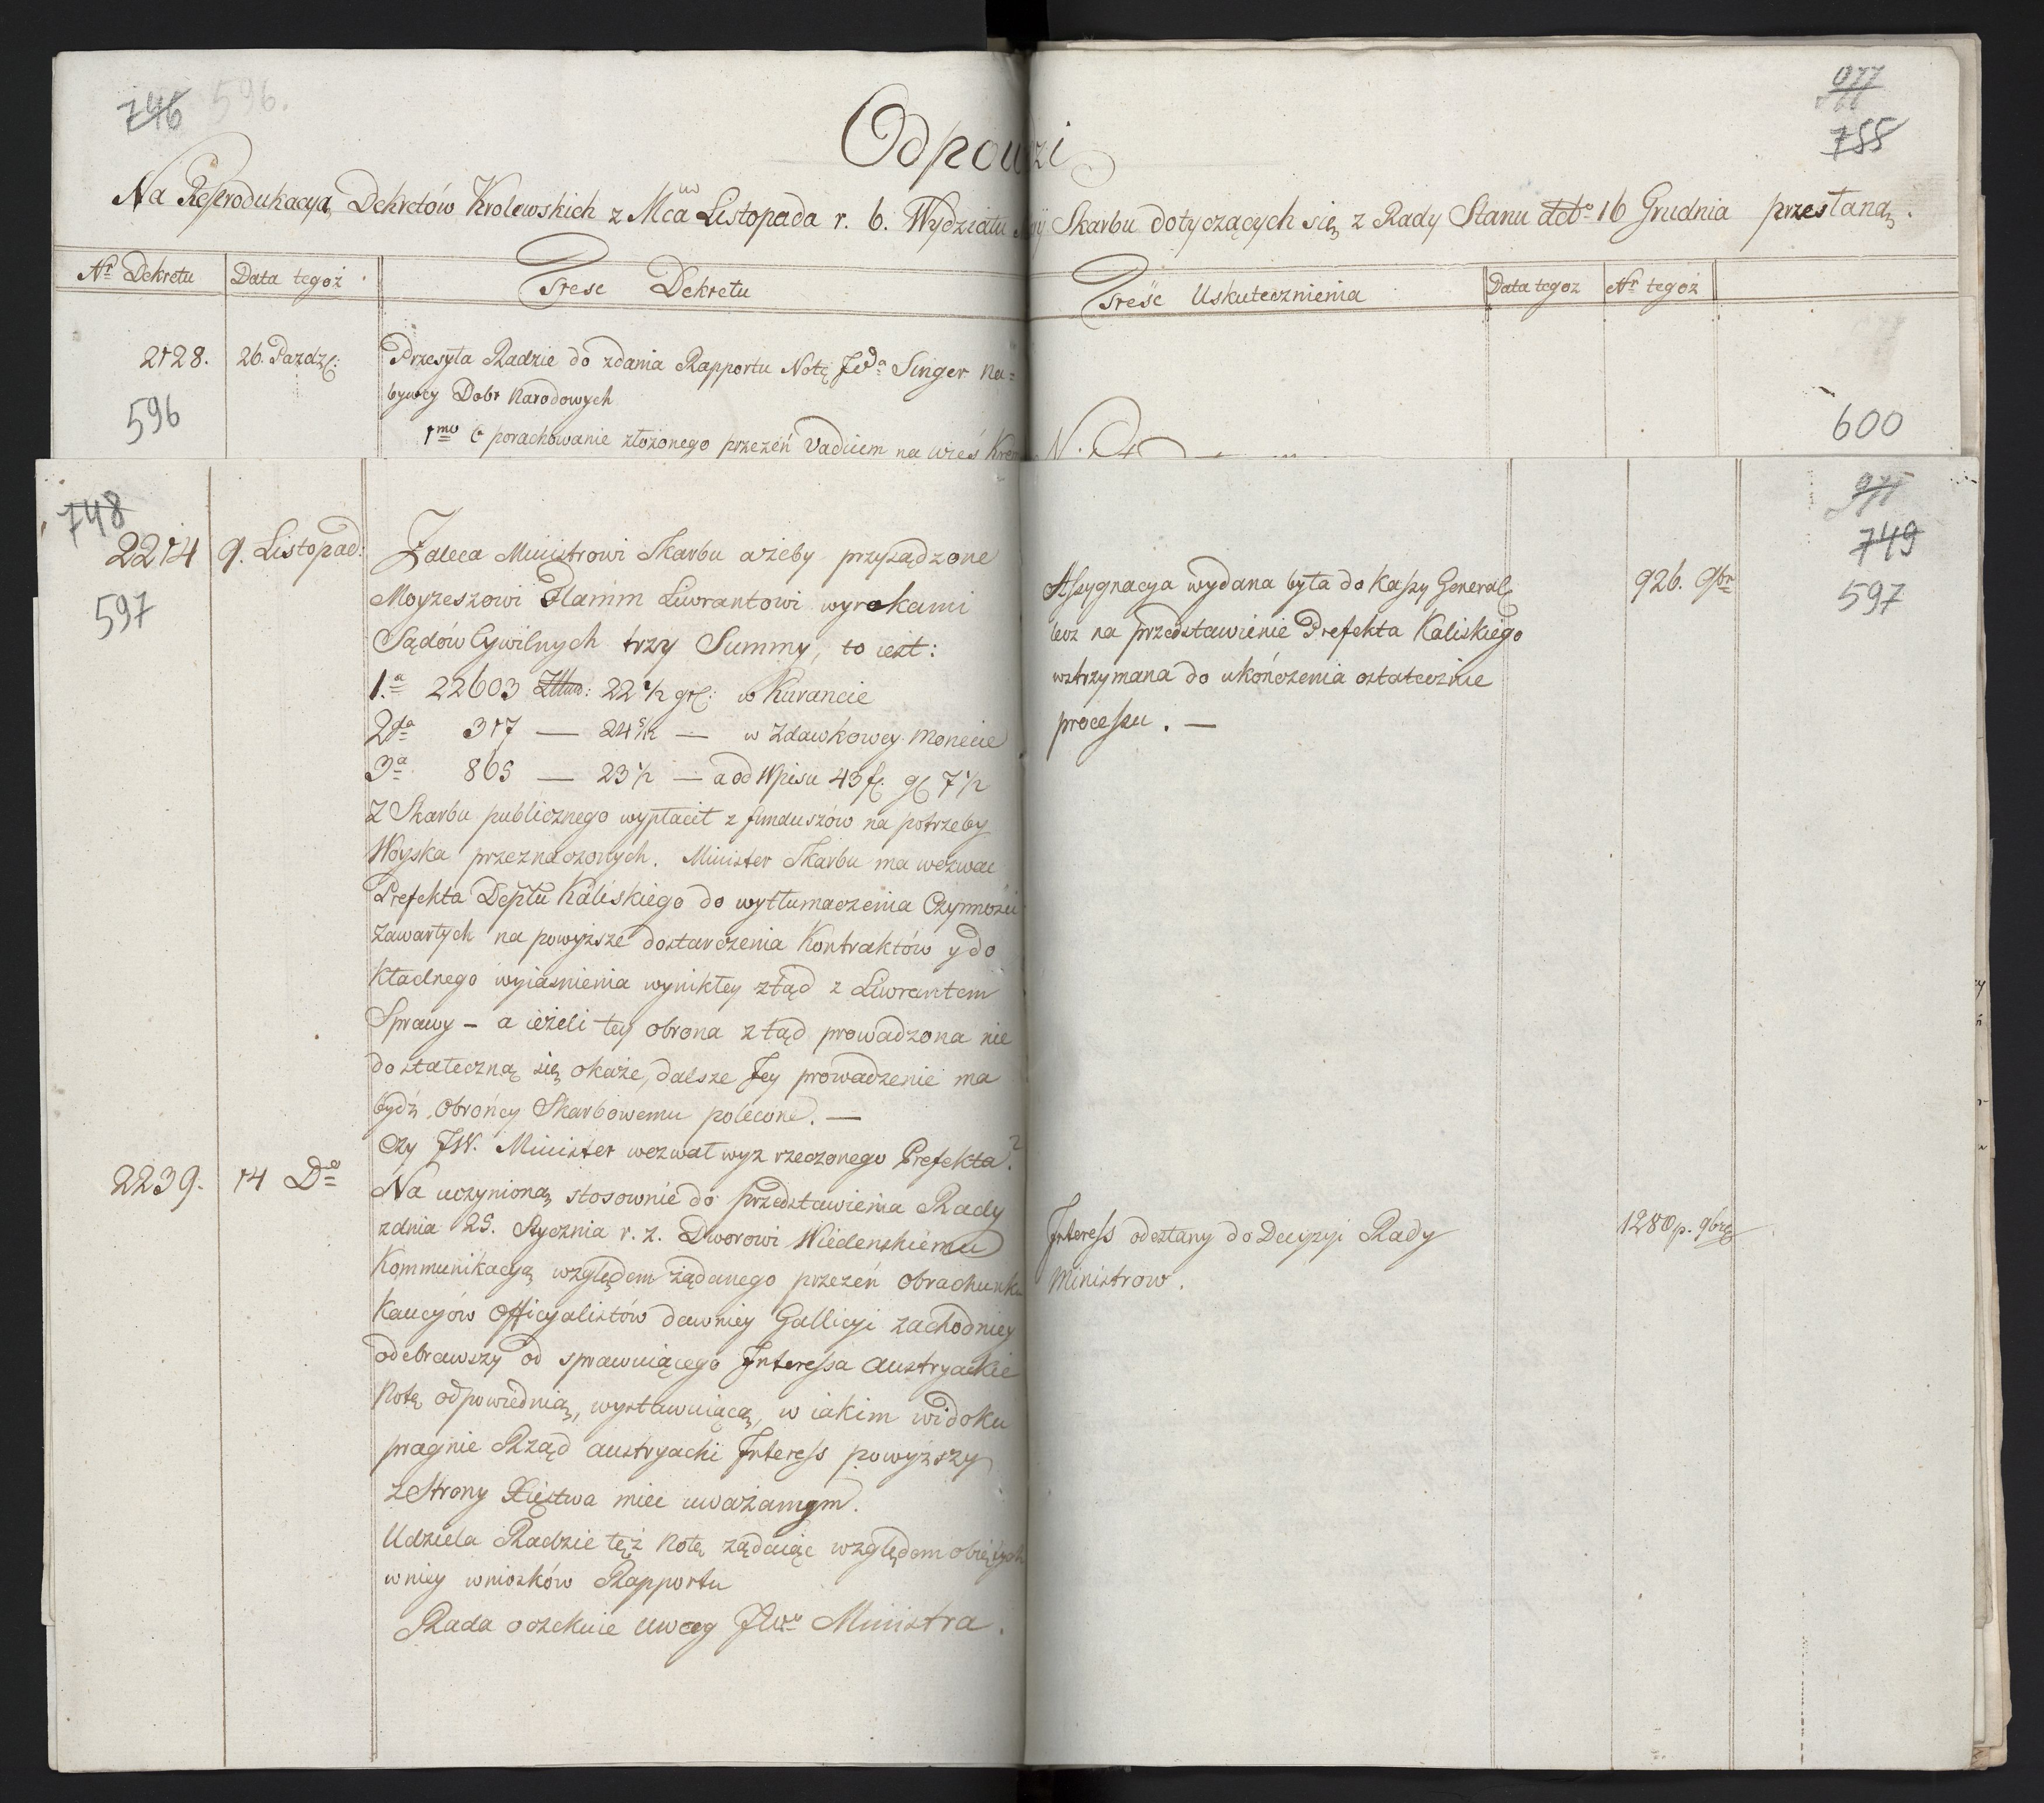 746 596.
977
755
Odpowiedzi
Na Reprodukacyą Dekretów Krolewskich z Mca Listopada r. b. Wydziału Skarbu dotyczących się z Rady Stanu dto 16 Grudnia przesłaną.
Nr Dekretu Data tegoż Tresc Dekretu Treść Uskutecznienia Data tegoz Nr tegoż
2128. 26. Pazdz: Przesyła Radzie do zdania Rapportu Notę Singer na=
bywcy Dobr Narodowych
596
600
1mo o porachowanie złożonego przezeń Vadium na wieś
748
749
597
597
2214 9. Listopad: Zaleca Ministrowi Skarbu ażeby przysądzone
Moyzeszowi Flamm Liwrantowi wyrokami
Sądów Cywilnych trzy Summy, to iest:
1.a 22603 22 1/2 gr: w Kurancie
2da 317 — — w Zdawkowey Monecie
3a 865 — 23 1/2 — a od Wpisu 43 f. g 7 1/2
Z Skarbu publicznego wypłacił z funduszów na potrzeby
Woyska przeznaczonych. Minister Skarbu ma wezwac
Prefekta Deptu Kaliskiego do wytłumaczenia Czynności
zawartych na powyższe dostarczenia Kontraktów y do
kładnego wyiasnienia wynikłey ztąd z Liwrantem
Sprawy – a ieżeli tey obrona ztąd prowadzona nie
dostateczną się okaże, dalsze Jey prowadzenie ma
bydź Obrońcy Skarbowemu polecone. —
Czy JW. Minister wezwał wyz rzeczonego Prefekta?
Assygnacya wydana była do Kassy General.
lecz na przedstawienie Prefekta Kaliskiego
wstrzymana do ukończenia ostatecznie
processu. —
926. 9br
2239. 14 Do Na uczynioną stosownie do przedstawienia Rady
zdnia 25. Stycznia r. z. Dworowi Wiedenskiemu
Kommunikacyą względem żądanego przezeń obrachunku
Kaucyów Officyalistów dawniey Gallicyi zachodniey
odebrawszy od sprawuiącego Interessa austryackie
Notę odpowiednią, wystawuiącą, w iakim widoku
pragnie Rząd austryacki Interess powyższy
z Strony Xięstwa miec uważanym.
Udziela Radzie też Notę żądaiąc względem obiętych
w niey wniosków Rapportu
Rada oczekuie uwag JWo Ministra.
Interess odesłany do Decyzyi Rady
Ministrow.
1280 p. 9br